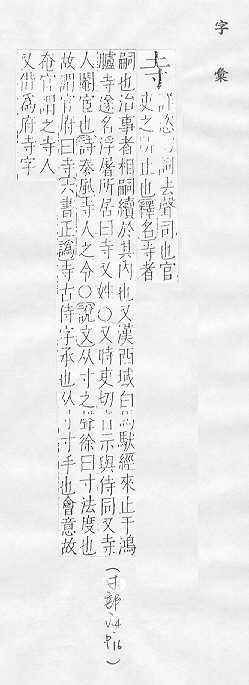 字彙
寺 詳恣切詞去聲司也官
吏之所止也釋名寺者
嗣也治事者相嗣續於其內也又漢西域白馬馱經來止于鴻
臚寺遂名浮屠所居曰寺又姓○又時吏切音示與侍同又寺
人閹宦也詩秦風寺人之令○說文从寸之聲徐曰寸法度也
故謂官府曰寺六書正譌寺古侍字承也从寸寸手也會意故
奄官謂之寺人
又借為府寺字
(寸部 v.4. p16)